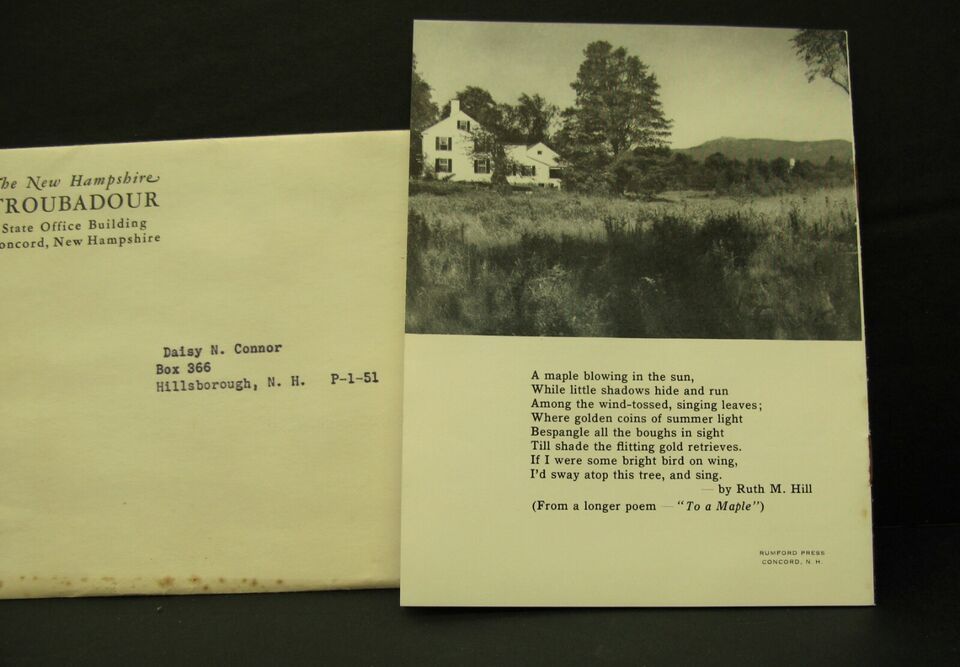 The New Hampshire
TROUBADOUR
State Office Building
Concord, New Hampshire
Daisy N. Connor
Box 366
Hillsborough, N. H. P-1-51
A maple blowing in the sun,
While little shadows hide and run
Among the wind-tossed, singing leaves;
Where golden coins of summer light
Bespangle all the boughs in sight
Till shade the flitting gold retrieves.
If I were some bright bird on wing,
I'd sway atop this tree, and sing.
— by Ruth M. Hill
(From a longer poem — "To a Maple")
RUMFORD PRESS
CONCORD, N. H.